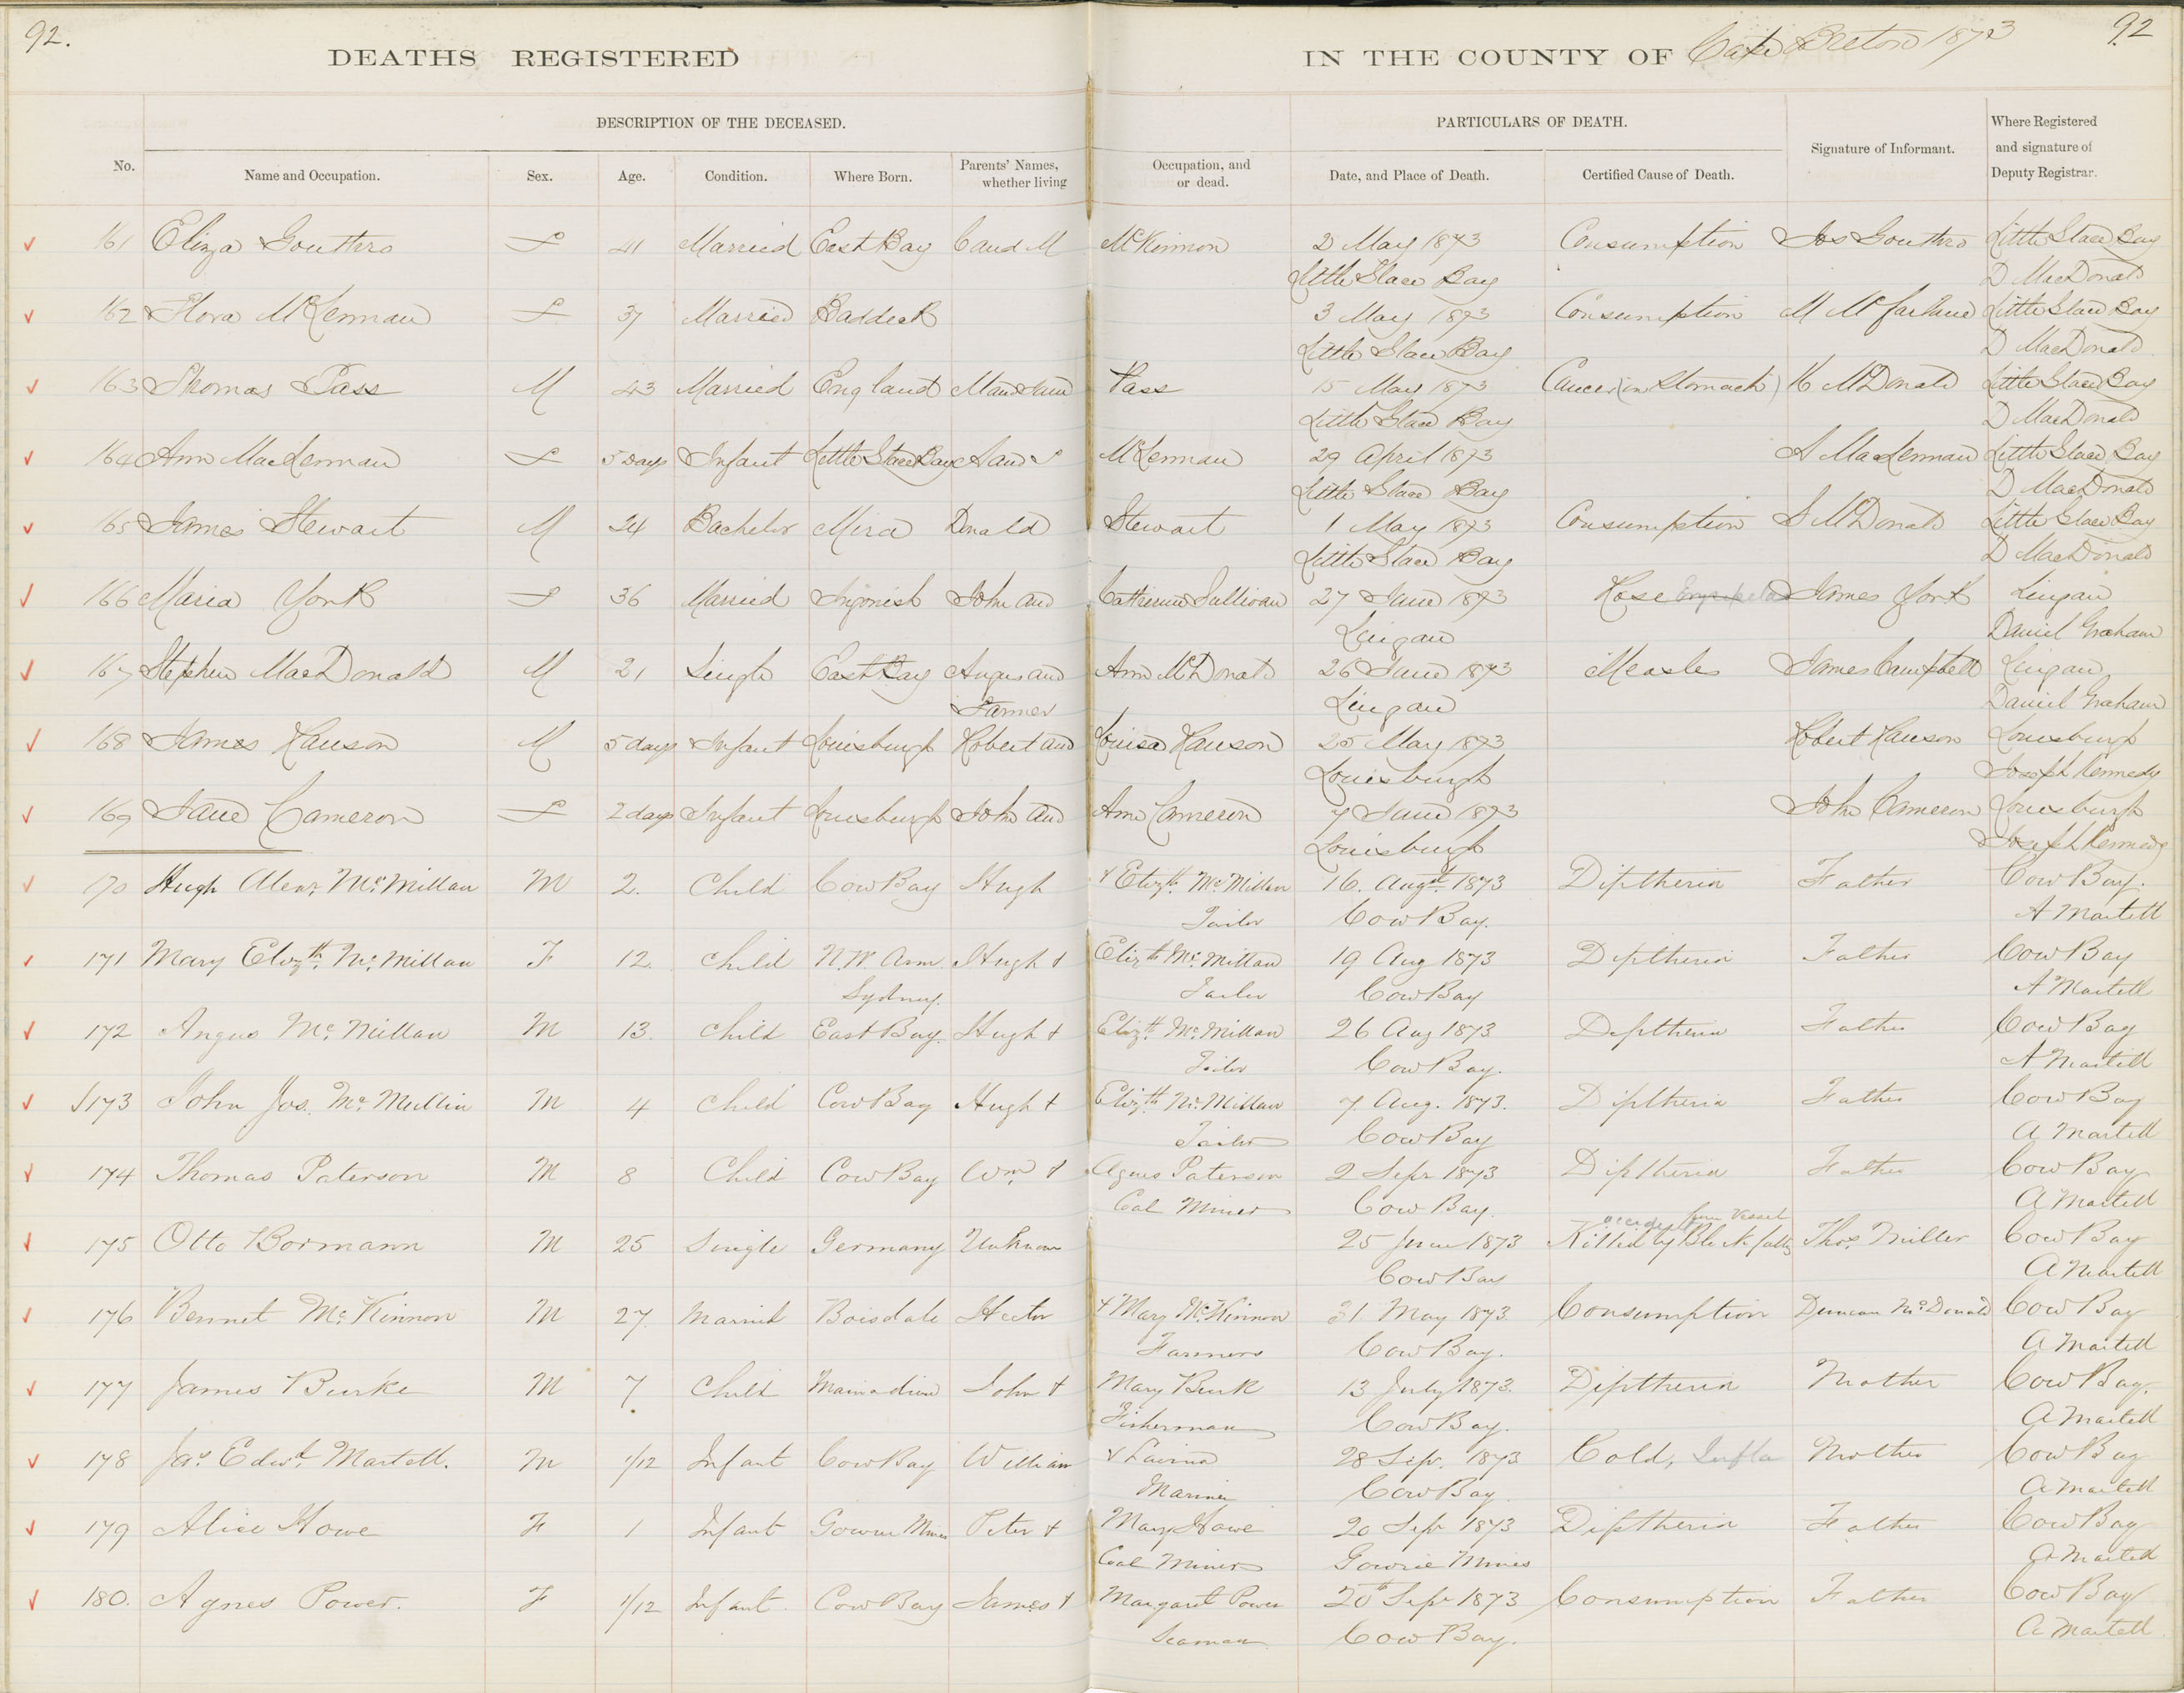 92.
DEATHS REGISTERED
IN THE COUNTY OF Cape Breton 1873
92
DESCRIPTION OF THE DECEASED.
PARTICULARS OF DEATH.
No.
Name and Occupation.
Sex.
Age.
Condition.
Where Born.
Parents' Names, whether living
Occupation, and or dead.
Date, and Place of Death.
Certified Cause of Death.
Signature of Informant.
Where Registered and signature of Deputy Registrar.
161 Eliza Gouthro F 41 Married East Bay C and M McKinnon 2 May 1873 Consumption Jos Gouthro Little Glace Bay
Little Glace Bay D MacDonald
162 Flora McLennan F 37 Married Baddeck 3 May 1873 Consumption M McFarlane Little Glace Bay
Little Glace Bay D MacDonald
163 Thomas Pass M 43 Married England M and Jane Pass 15 May 1873 Cancer (in Stomach) McDonald Little Glace Bay
Little Glace Bay D MacDonald
164 Ann MacLennan F 5 Days Infant Little Glace Bay A and S McLennan 29 April 1873 A MacLennan Little Glace Bay
Little Glace Bay D MacDonald
165 James Stewart M 24 Bachelor Mira Donald Stewart 1 May 1873 Consumption S McDonald Little Glace Bay
Little Glace Bay D MacDonald
166 Maria York F 36 Married Ingonish John and Catherine Sullivan 27 June 1873 Rose Erysipelas James York Lingan
Lingan Daniel Graham
167 Stephen MacDonald M 21 Single East Bay Angus and Ann McDonald 26 June 1873 Measles James Campbell Lingan
Farmer Lingan Daniel Graham
168 James Hanson M 5 days Infant Louisburgh Robert and Louisa Hanson 25 May 1873 Robert Hanson Louisburgh
Louisburgh Joseph Kennedy
169 Jane Cameron F 2 days Infant Louisburgh John and Ann Cameron 7 June 1873 John Cameron Louisburgh
Louisburgh Joseph Kennedy
170 Hugh Alexr. Mc.Millan M 2. Child Cow Bay Hugh & Elizth. McMillan 16. Augst. 1873 Diptheria Father Cow Bay.
Tailor Cow Bay. A Martell
171 Mary Elizth. Mc.Millan F 12. Child N.W. Arm Hugh & Elizth Mc.Millan 19 Aug 1873 Diptheria Father Cow Bay
Sydney. Tailor Cow Bay A Martell
172 Angus Mc.Millan M 13. Child East Bay. Hugh & Elizth. Mc.Millan 26 Aug 1873 Diptheria Father Cow Bay
Tailor Cow Bay. A Martell
173 John Jos. Mc.Mullin M 4 Child Cow Bay Hugh & Elizth. Mc.Millan 7 Aug. 1873. Diptheria Father Cow Bay
Tailor Cow Bay A Martell
174 Thomas Paterson M 8 Child Cow Bay Wm. & Agnes Paterson 2 Sepr 1873 Diptheria Father Cow Bay
Coal Miner Cow Bay. A Martell
175 Otto Bormann M 25 Single Germany Unknown 25 June 1873 Killed by Block falling from Vessel Thos. Miller Cow Bay
Cow Bay A Martell
176 Bennet Mc.Kinnon M 27. Married Boisdale Hector & Mary McKinnon 31. May 1873 Consumption Duncan McDonald Cow Bay
Farmers Cow Bay. A Martell
177 James Burke M 7. Child Mainadieu John & Mary Burk 13 July 1873. Diptheria Mother Cow Bay.
Fisherman Cow Bay. A Martell
178 Jas. Edwd. Martell. M 1/12 Infant Cow Bay William & Lavinia 28 Sepr. 1873 Cold, Infla Mother Cow Bay
Mariner Cow Bay A Martell
179 Alice Howe F 1 Infant Gowrie Mines Peter & Mary Howe 20 Sepr 1873 Diptheria Father Cow Bay
Coal Miner Gowrie Mines A Martell
180. Agnes Power. F 1/12 Infant. Cow Bay James & Margaret Power 20th Sepr 1873 Consumption Father Cow Bay
Seaman Cow Bay. A Martell